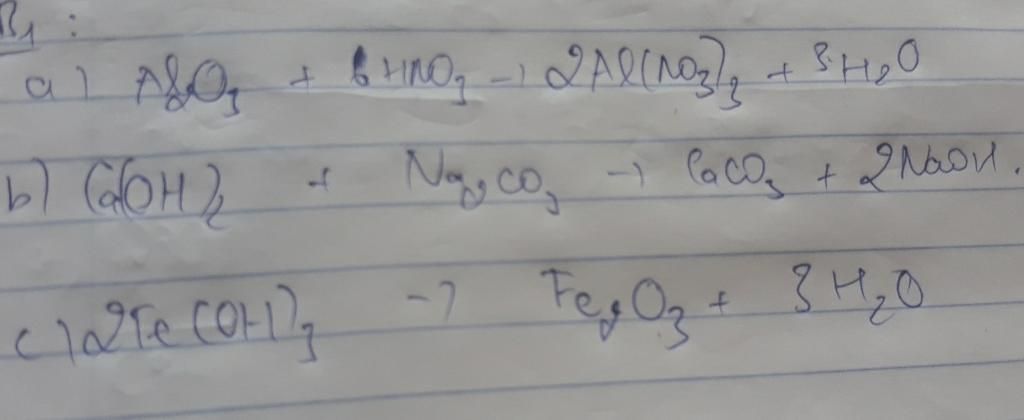 B1 :
a) Al2O3 + 6HNO3 → 2Al(NO3)3 + 3H2O
b) Ca(OH)2 + Na2CO3 → CaCO3 + 2NaOH.
c) 2Fe(OH)3 → Fe2O3 + 3H2O